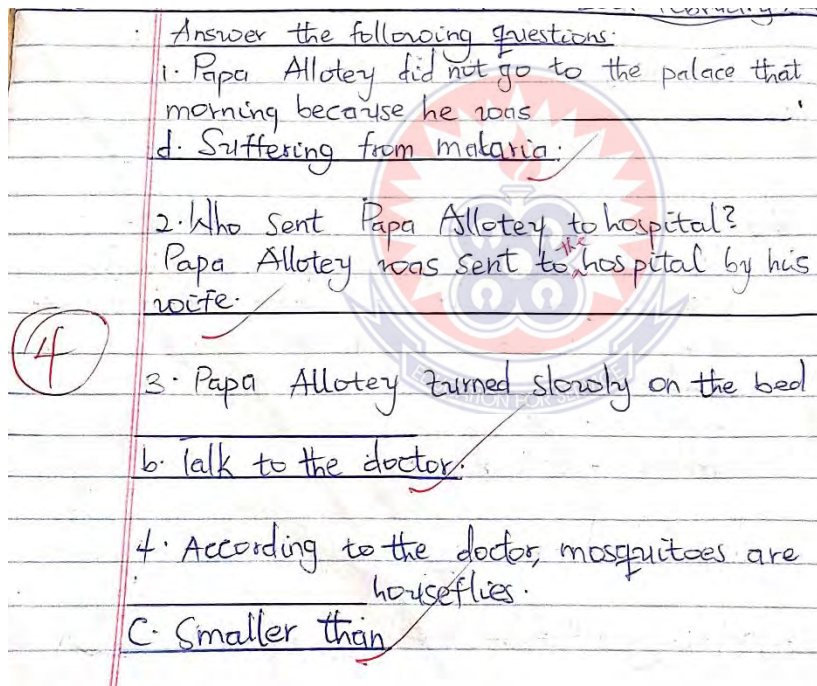 Answer the following questions.
1. Papa Allotey did not go to the palace that
morning because he was ________.
d. Suffering from malaria.
2. Who sent Papa Allotey to hospital?
Papa Allotey was sent to the hospital by his
wife.
4
3. Papa Allotey turned slowly on the bed
________
b. Talk to the doctor.
4. According to the doctor, mosquitoes are
________ houseflies.
C. Smaller than
EDUCATION FOR SERVICE